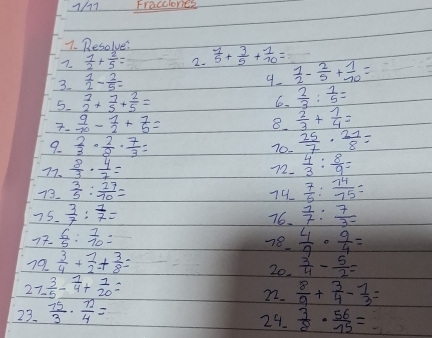 1/11 Fracciones
1. Resuelve:
1. 1/2 + 2/5 =
2. 1/5 + 3/5 + 1/10 =
3. 1/2 - 2/5 =
4. 1/2 - 2/5 + 1/10 =
5. 1/2 + 1/5 + 2/5 =
6. 2/3 : 1/5 =
7. 9/10 - 1/2 + 1/5 =
8. 2/3 + 1/4 =
10. 25/7 · 21/8 =
11. 8/3 · 4/7 =
12. 4/3 : 8/9 =
13. 3/5 : 27/10 =
14. 7/5 : 14/15 =
15. 3/7 : 1/7 =
17. 6/5 : 1/10 =
18. 4/9 · 9/4 =
19. 3/4 + 1/2 + 3/8 =
20. 3/4 - 5/2 =
21. 3/5 - 1/4 + 1/20 =
22. 8/9 + 3/4 - 1/3 =
23. 15/3 · 12/4 =
24. 3/8 · 56/15 =